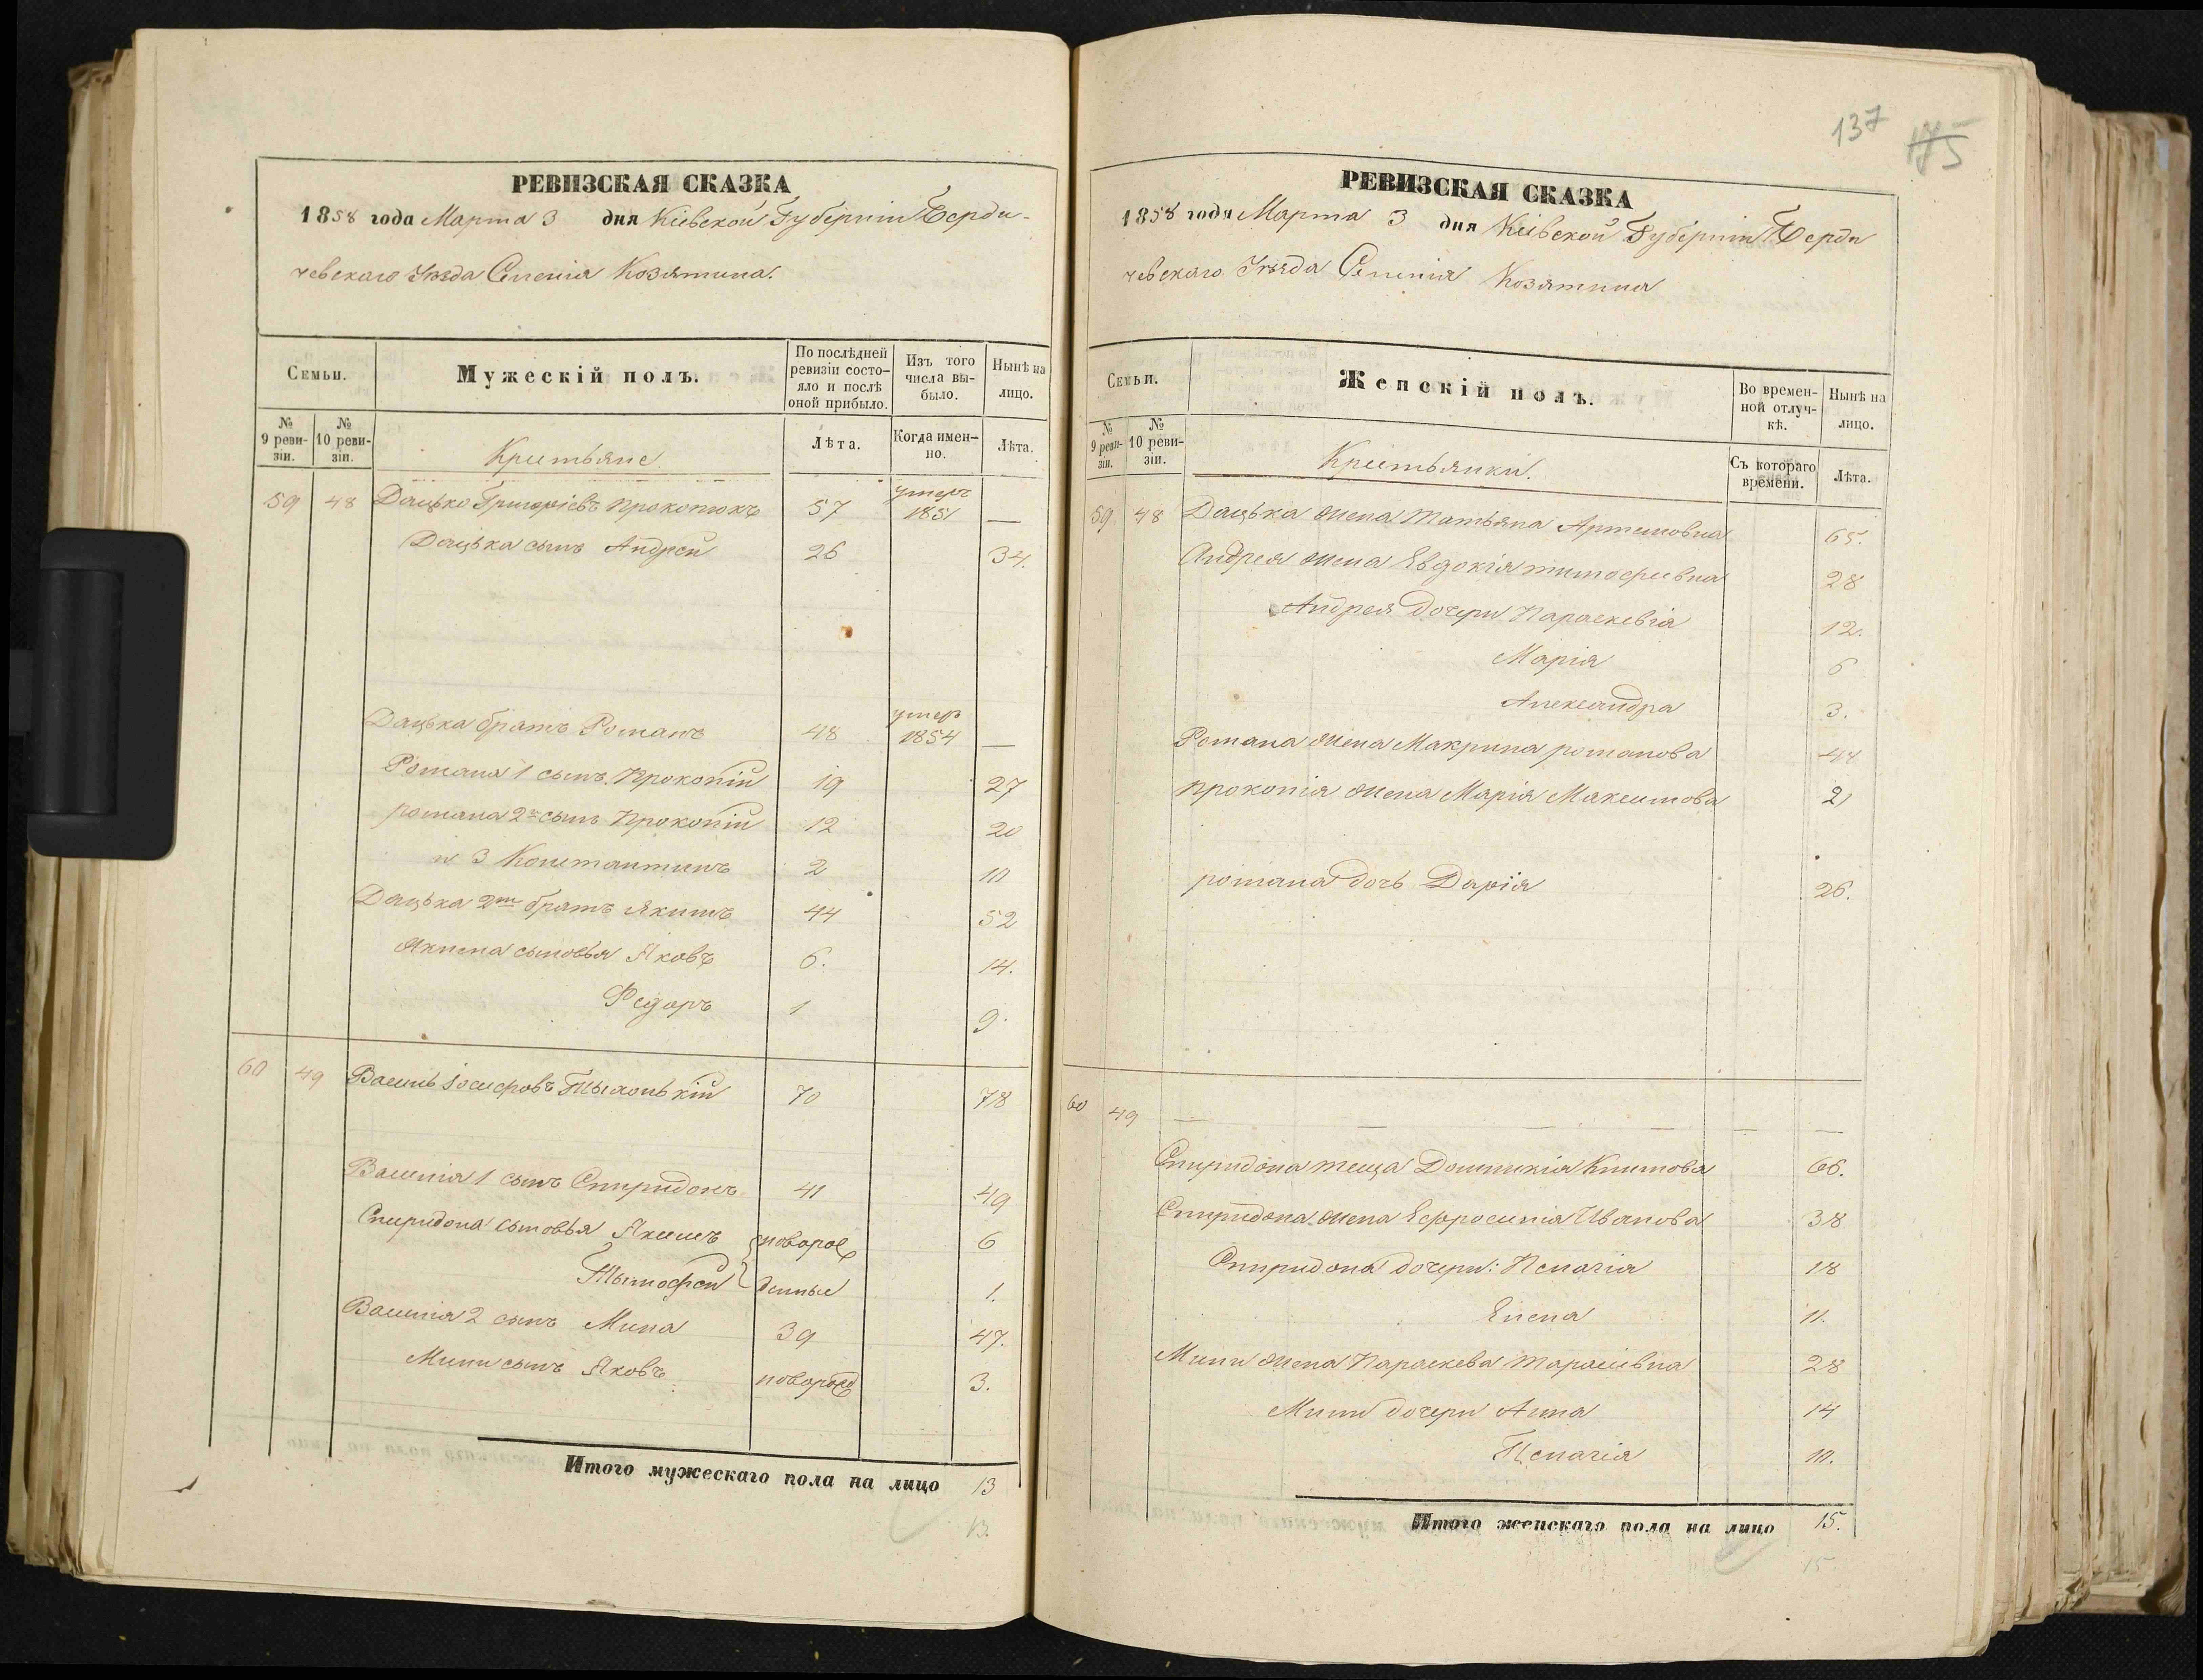 137 175
РЕВИЗСКАЯ СКАЗКА
1858 года Марта 3 дня Кіевской Губерніи Берди-
чевскаго Уѣзда Селенія Козятина.
Семьи.
Мужескій полъ.
По послѣдней ревизіи состо-яло и послѣ оной прибыло.
Изъ того числа вы-было.
Нынѣ на лицо.
№ 9 реви-зіи.
№ 10 реви-зіи.
Крестьяне
Лѣта.
Когда имен-но.
Лѣта.
59 48 Дацько Григоріевъ Прокопюкъ 57 умеръ 1851 —
Дацька сынъ Андрей 26 34.
Дацька братъ Романъ 48 умеръ 1854 —
Романа 1 сынъ Прокопій 19 27
романа 2й сынъ Прокопій 12 20
и 3 Константинъ 2 10
Дацька 2й братъ Якимъ 44 52
Якима сыновья Яковъ 6. 14.
Федоръ 1 9.
60 49 Василь Іосифовъ 70 78
Василія 1 сынъ Спиридонъ 41 49
Спиридона сыновья Якимъ новорож 6
Тымофей денные 1.
Василія 2 сынъ Мина 39 47.
Мины сынъ Яковъ новорожд 3.
Итого мужескаго пола на лицо 13
13.
РЕВИЗСКАЯ СКАЗКА
1858 года Марта 3 дня Кіевской Губерніи Берди
чевскаго Уѣзда Селенія Козятина
Семьи.
Женскій полъ.
Во времен-ной отлуч-кѣ.
Нынѣ на лицо.
№ 9 реви-зіи.
№ 10 реви-зіи.
Крестьянки.
Съ котораго времени.
Лѣта.
59 48 Дацька жена Татьяна Артемовна 65.
Андрея жена Евдокія тимофеевна 28
Андрея дочери Параскевія 12.
Марія 6
Александра 3.
Романа жена Макрина романова 44
Прокопія жена Марія Максимова 21
романа дочь Дарія 26.
60 49 — — — — — — —
Спиридона теща Домникія Климова 66.
Спиридона жена Ефросинія Иванова 38
Спиридона дочери: Пелагія 18
Елена 11.
Мины жена Параскева тарасіевна 28
Мины дочери Анна 14
Пелагія 10.
Итого женскаго пола на лицо 15.
15.